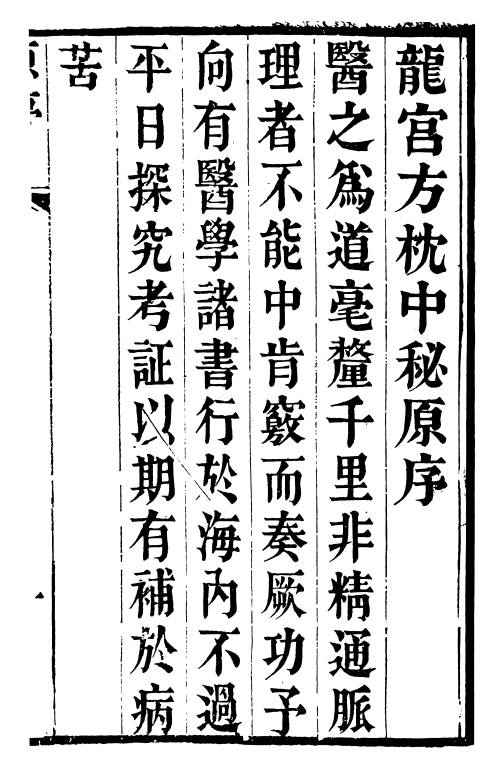 龍宮方枕中秘原序
醫之爲道毫釐千里非精通脈
理者不能中肯竅而奏厥功予
向有醫學諸書行於海內不過
平日探究考証以期有補於病
苦